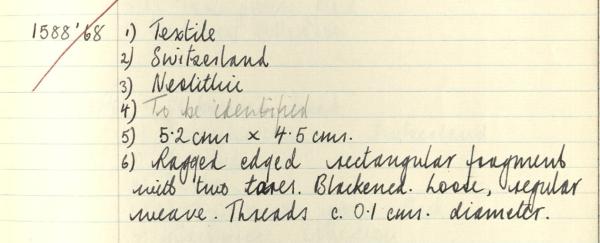 1588'68 1) Textile
2) Switzerland
3) Neolithic
4) To be identified
5) 5.2 cms x 4.5 cms.
6) Ragged edged rectangular fragment
with two tares. Blackened. Loose, regular
weave. Threads c. 0.1 cms. diameter.